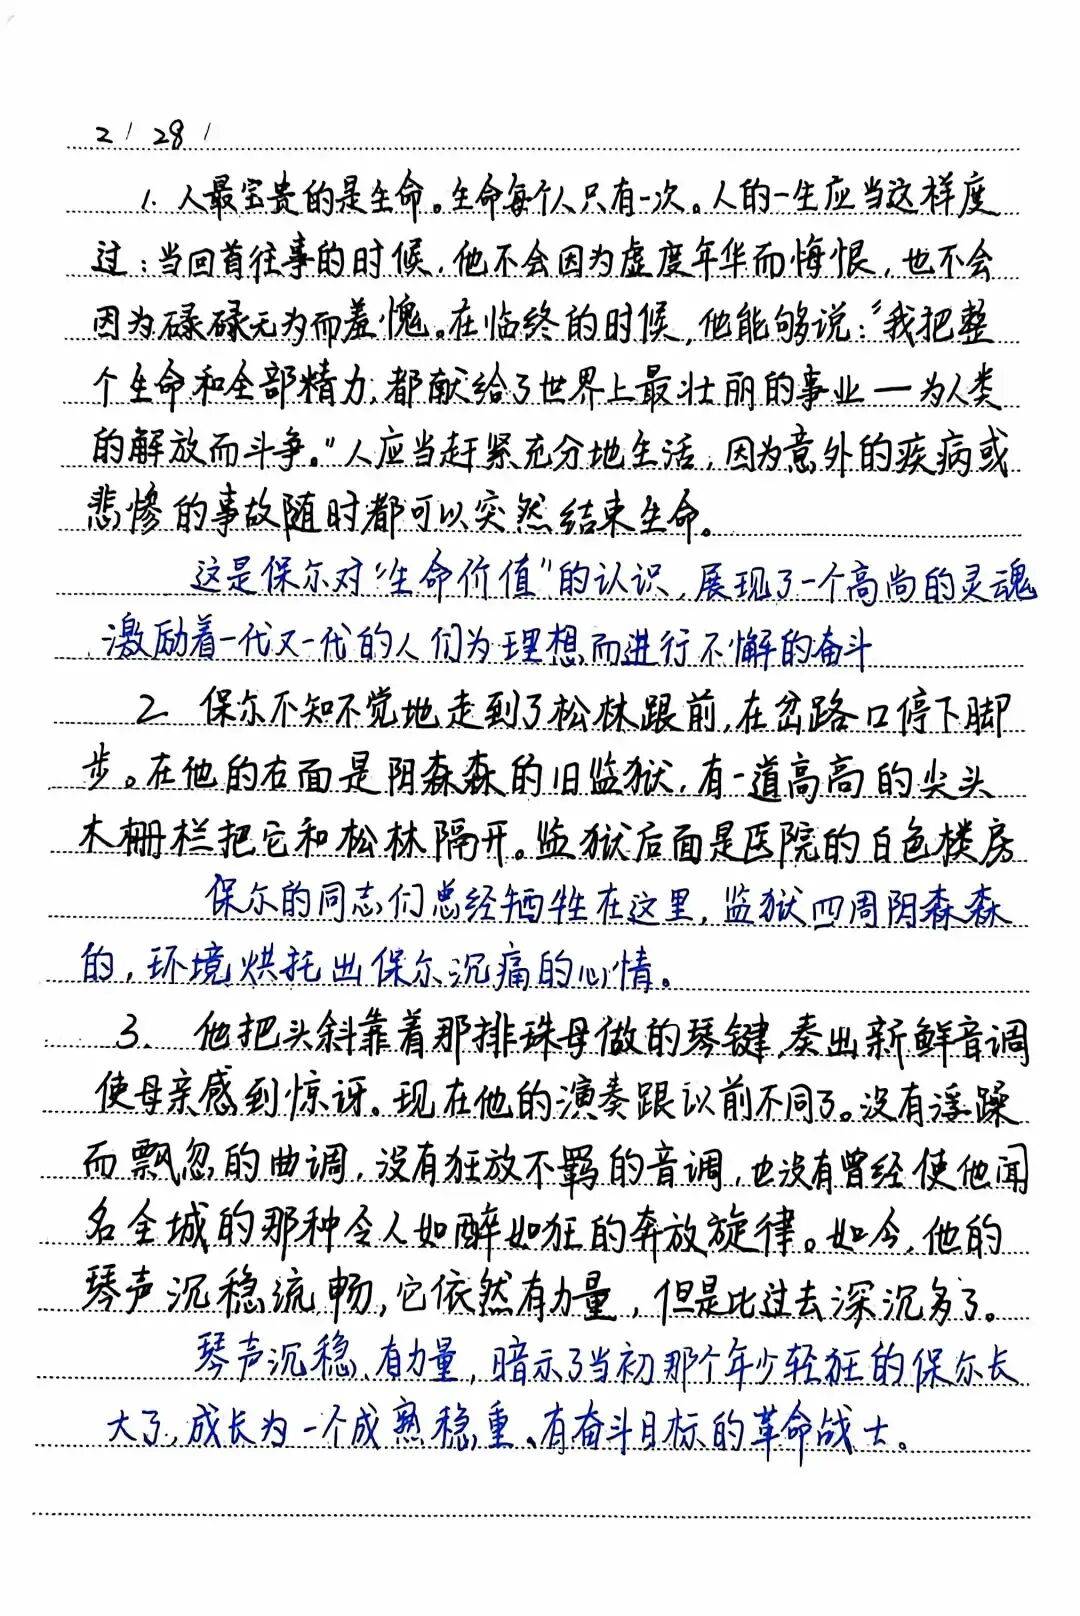 2 / 28 /
1. 人最宝贵的是生命。生命每个人只有一次。人的一生应当这样度
过：当回首往事的时候，他不会因为虚度年华而悔恨，也不会
因为碌碌无为而羞愧。在临终的时候，他能够说：“我把整
个生命和全部精力，都献给了世界上最壮丽的事业—为人类
的解放而斗争。”人应当赶紧充分地生活，因为意外的疾病或
悲惨的事故随时都可以突然结束生命。
这是保尔对“生命价值”的认识，展现了一个高尚的灵魂
激励着一代又一代的人们为理想而进行不懈的奋斗
2 保尔不知不觉地走到了松林跟前，在岔路口停下脚
步。在他的右面是阴森森的旧监狱，有一道高高的尖头
木栅栏把它和松林隔开。监狱后面是医院的白色楼房
保尔的同志们总经牺牲在这里，监狱四周阴森森
的，环境烘托出保尔沉痛的心情。
3. 他把头斜靠着那排珠母做的琴键，奏出新鲜音调
使母亲感到惊讶。现在他的演奏跟以前不同了。没有浮躁
而飘忽的曲调，没有狂放不羁的音调，也没有曾经使他闻
名全城的那种令人如醉如狂的奔放旋律。如今，他的
琴声沉稳流畅，它依然有力量，但是比过去深沉多了。
琴声沉稳、有力量，暗示了当初那个年少轻狂的保尔长
大了，成长为一个成熟稳重、有奋斗目标的革命战士。